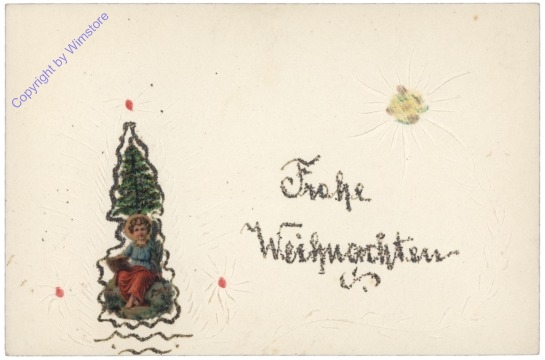 Copyright by Wimstore
Frohe
Weihnachten